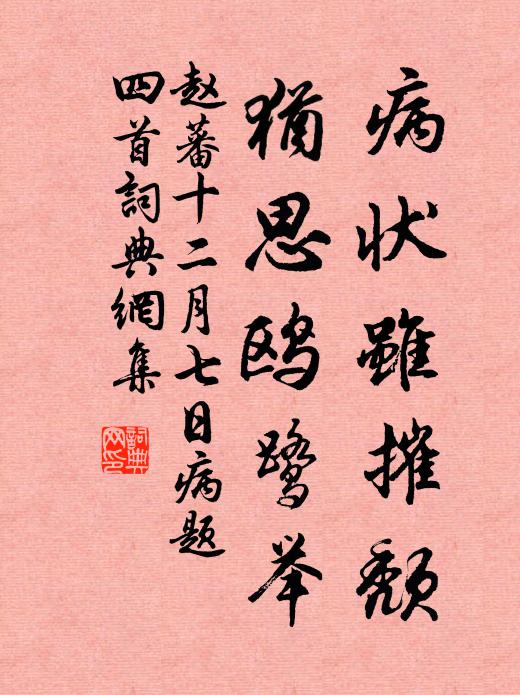 病状雖摧颓
猶思鸥鹭举
赵蕃十二月七日病题
四首詞典網集
詞典
网印